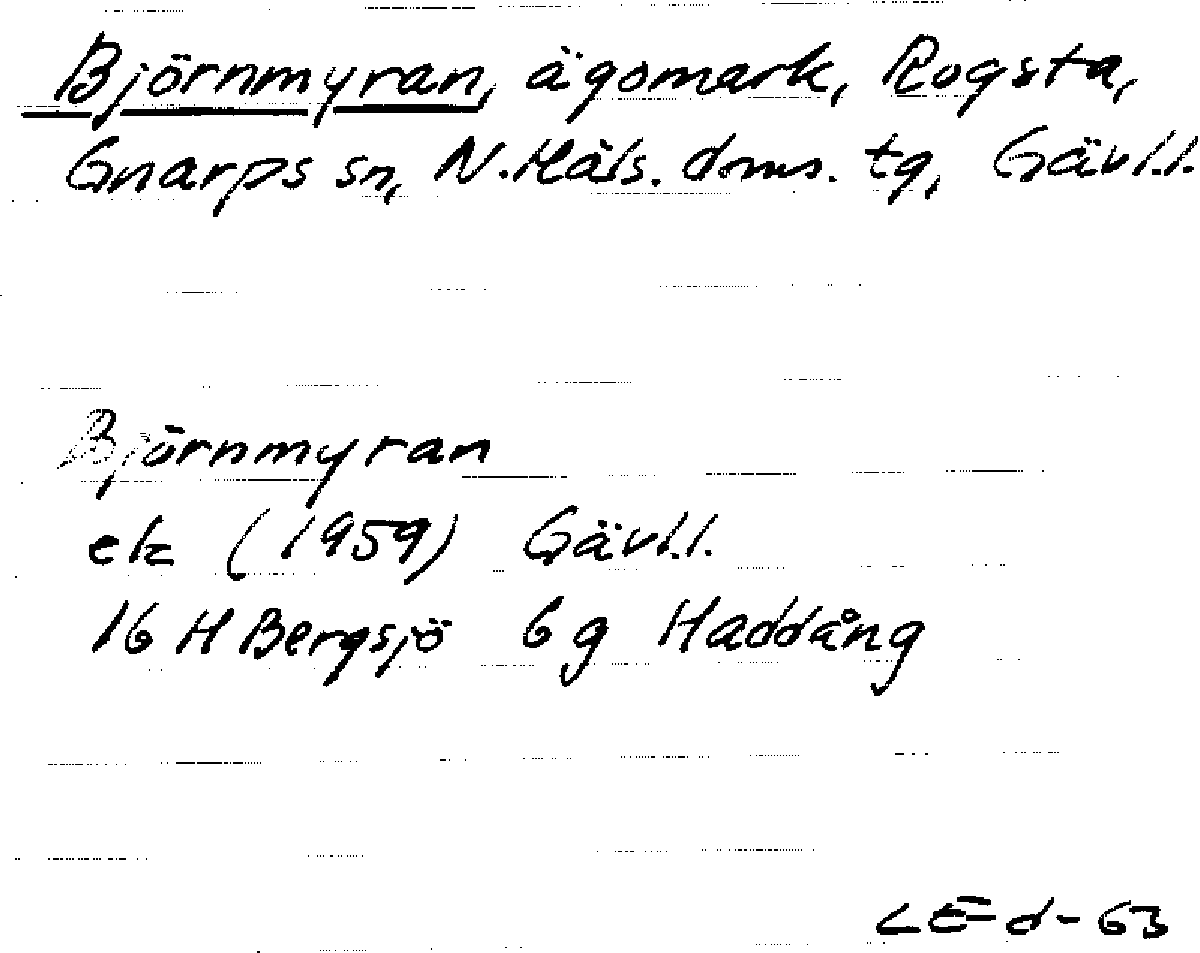 Björnmyran, ägomark, Rogsta,
Gnarps sn, N.Häls. doms. tg, Gävl.l.
Björnmyran
ek (1959) Gävl.l.
16 H Bergsjö 6 g Haddång
LEd-63